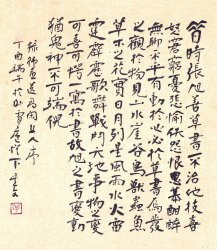 昔時張旭善草書不治他技喜
怒窘窮憂悲愉佚怨恨思慕酣醉
無聊不平有動於心必於草書焉發
之觀於物見山水崖谷鳥獸蟲魚
草木之花實日月列星風雨水火雷
霆霹靂歌舞戰鬥天地事物之變
可喜可愕一寓於書故旭之書變動
猶鬼神不可端倪
錄韓愈送高閑上人序
丁酉端午於